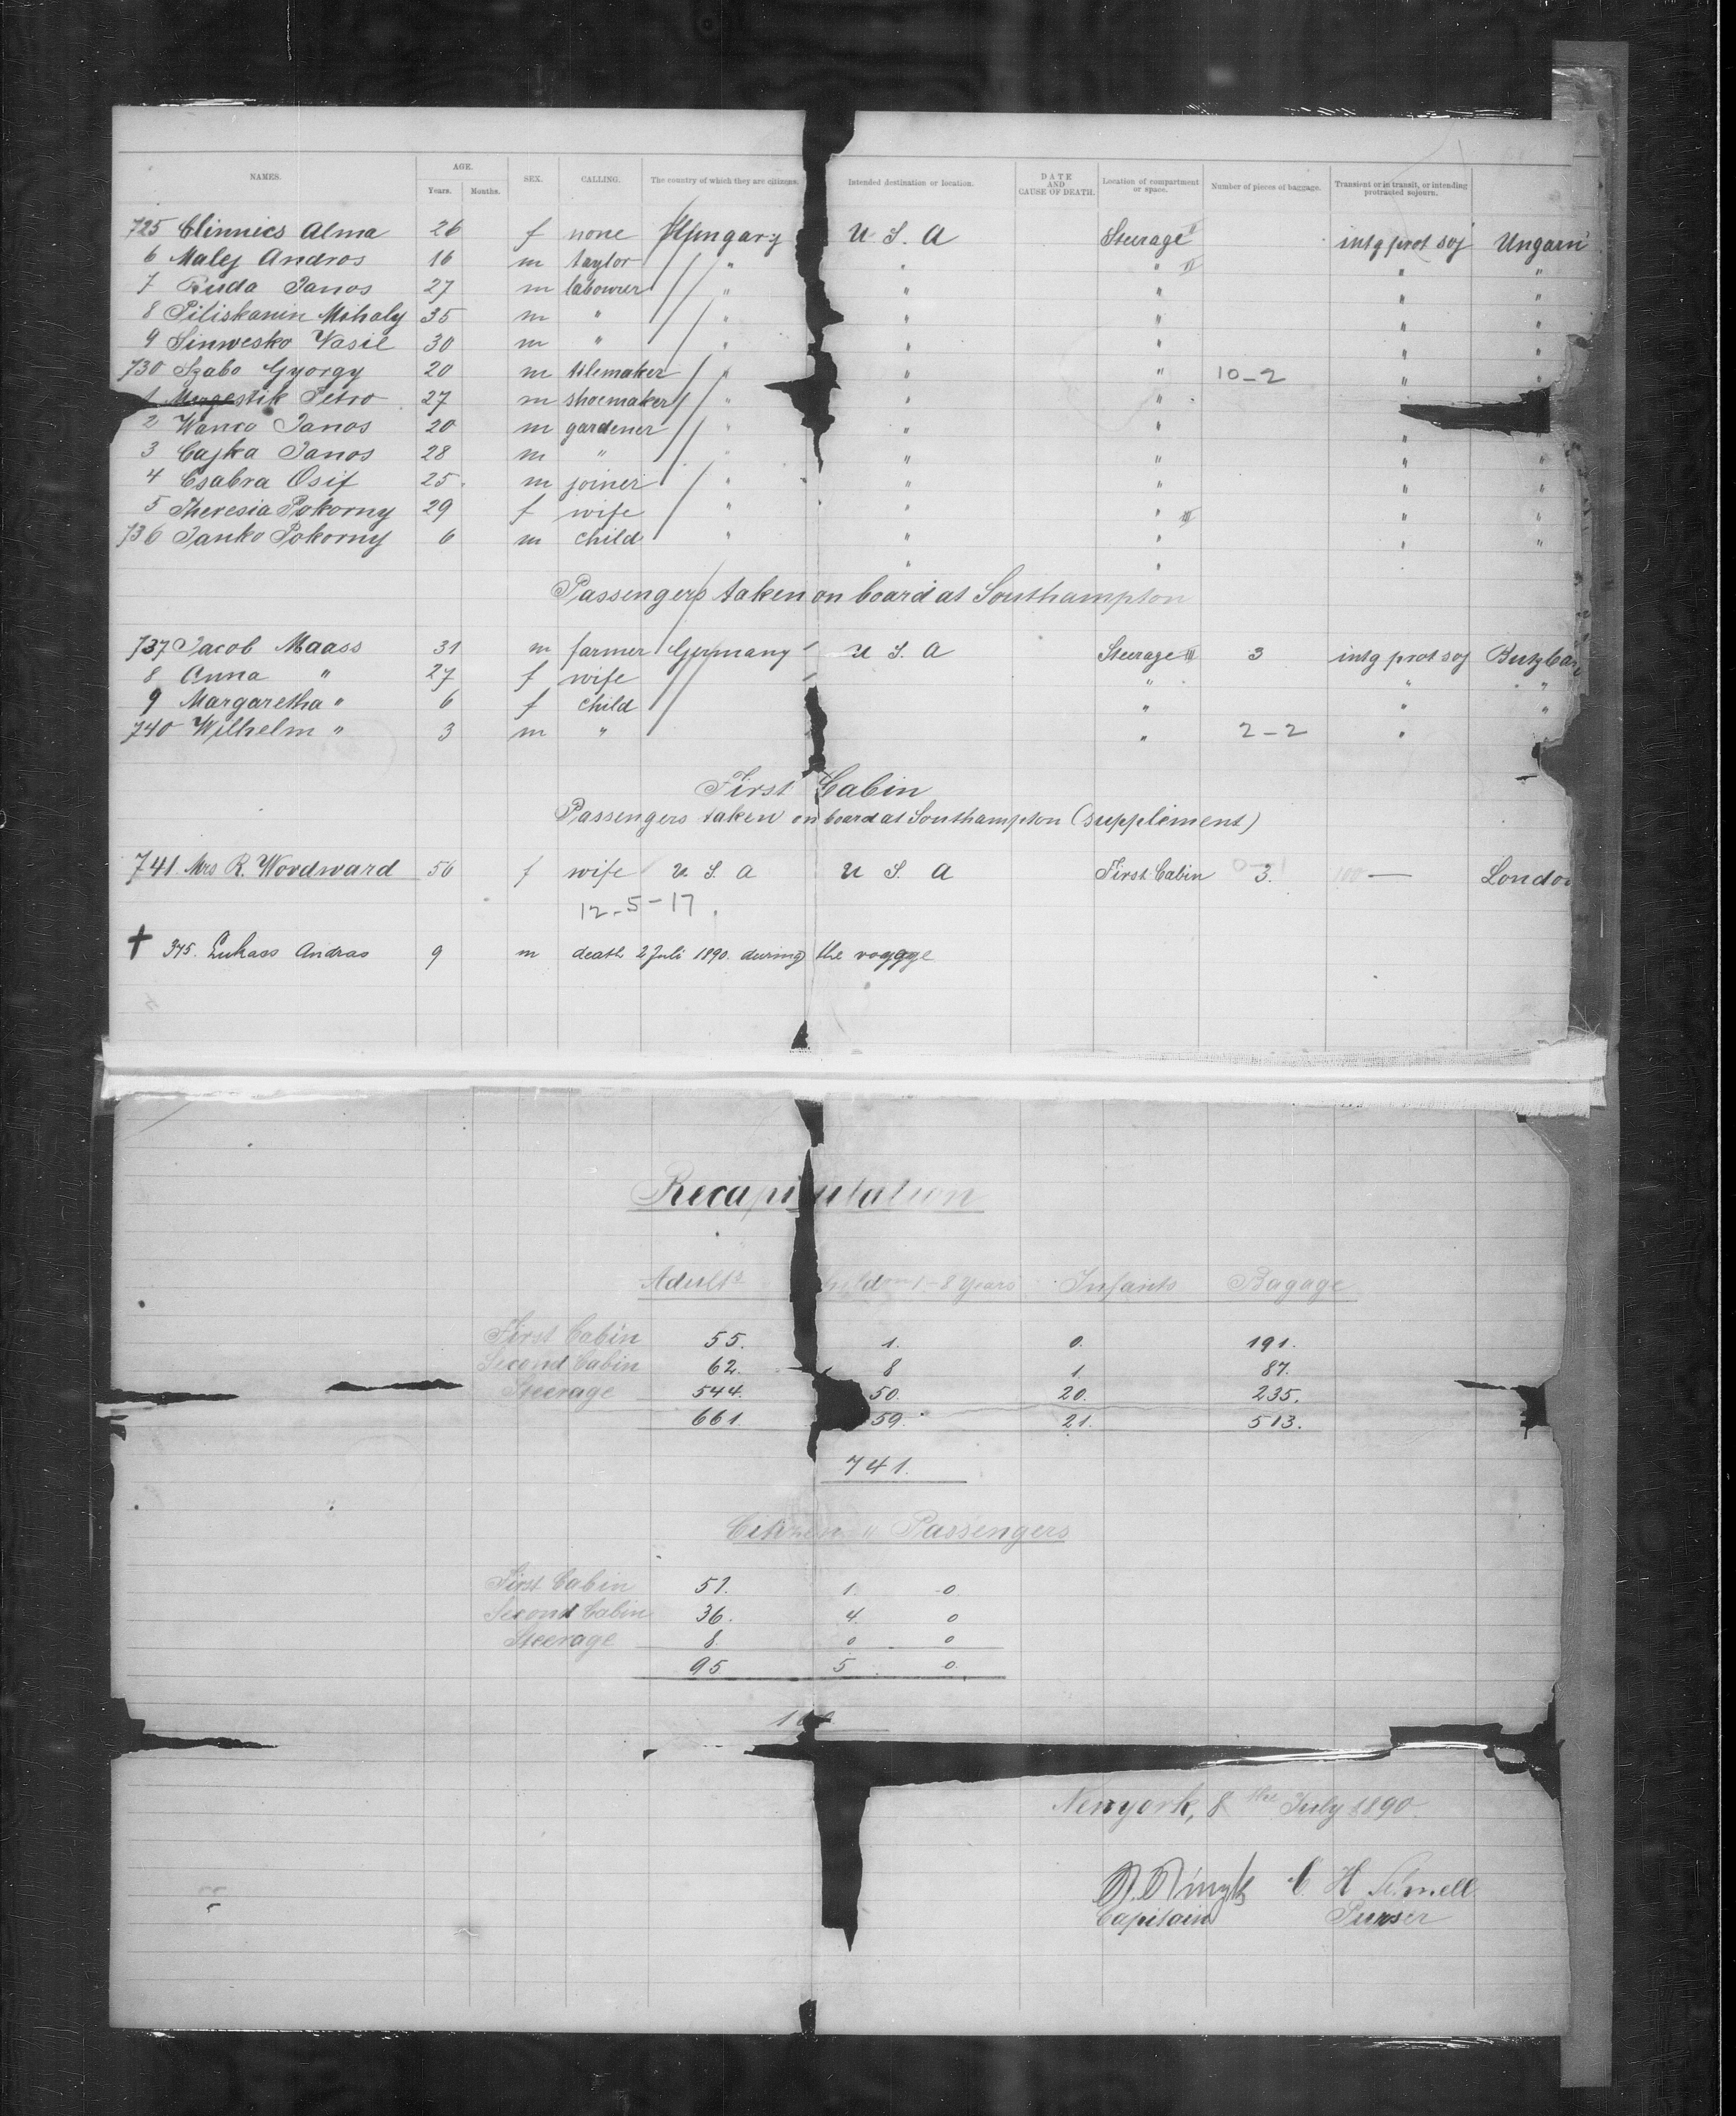 NAMES. AGE. Years. Months. SEX. CALLING. The country of which they are citizens. Intended destination or location. DATE AND CAUSE OF DEATH. Location of compartment or space. Number of pieces of baggage. Transient or in transit, or intending protracted sojourn.
725 Clinnics Alma 26 f none Hungary U S. A Steerage II intg prot soj Ungarn
6 Malej Andros 16 m taylor " " " II " "
7 Ruda Janos 27 m labourer " " " " "
8 Piliskanin Mihaly 35 m " " " " " "
9 Sinwesko Wasil 30 m " " " " " "
730 Szabo Gyorgy 20 m tilemaker " " " 10-2 " "
1 Petro 27 m shoemaker " " "
2 Wanco Janos 20 m gardener " " " "
3 Cajka Janos 28 m " " " " " "
4 Csabra Osif 25 m joiner " " " " "
5 Theresia Pokorny 29 f wife " " " III " "
736 Janko Pokorny 6 m child " " " " "
Passengers taken on board at Southampton
737 Jacob Maass 31 m farmer Germany U S. A Steerage III 3 intg prot soj
8 Anna " 27 f wife " " "
9 Margaretha " 6 f child " " "
740 Wilhelm " 3 m " " 2-2 "
First Cabin
Passengers taken on board at Southampton (supplement)
741 Mrs R. Woodward 56 f wife U S. A U S. A First Cabin 3. — London
12-5-17.
† 375. Lukass Andras 9 m death 2 Juli 1890. during the voyage
Recapitulation
Adults Children 1-8 Years Infants Bagage
First Cabin 55. 1. 0. 191.
Second Cabin 62. 8 1. 87.
Steerage 544. 50. 20. 235.
661. 59. 21. 513.
741.
Citizen " Passengers
First Cabin 51. 1. 0
Second Cabin 36. 4. 0
Steerage 8. 0 0
95 5 0.
100
Newyork, 8 the July 1890.
C. H.
Capitain Purser